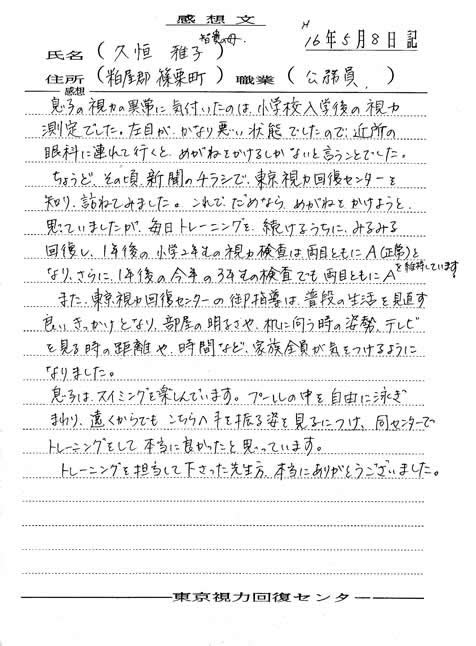 感想文
H16年5月8日 記
の母
氏名（久恒 雅子）
住所（粕屋郡 篠栗町） 職業（公務員）
感想
息子の視力の異常に気付いたのは、小学校入学後の視力
測定でした。左目が、かなり悪い状態でしたので、近所の
眼科に連れて行くと、めがねをかけるしかないと言うことでした。
ちょうど、その頃、新聞のチラシで、東京視力回復センターを
知り、訪ねてみました。これでだめなら、めがねをかけようと
思っていましたが、毎日トレーニングを、続けるうちに、みるみる
回復し、1年後の小学2年生の視力検査は両目ともにA(正常)と
なり、さらに、1年後の今年の3年生の検査でも両目ともにAを維持しています。
また、東京視力回復センターの御指導は、普段の生活を見直す
良いきっかけとなり、部屋の明るさや、机に向う時の姿勢、テレビ
を見る時の距離や、時間など、家族全員が気をつけるように
なりました。
息子は、スイミングを楽しんでいます。プールの中を自由に泳ぎ
まわり、遠くからでもこちらへ手を振る姿を見るにつけ、同センターで
トレーニングをして本当に良かったと思っています。
トレーニングを担当して下さった先生方、本当にありがとうございました。
東京視力回復センター